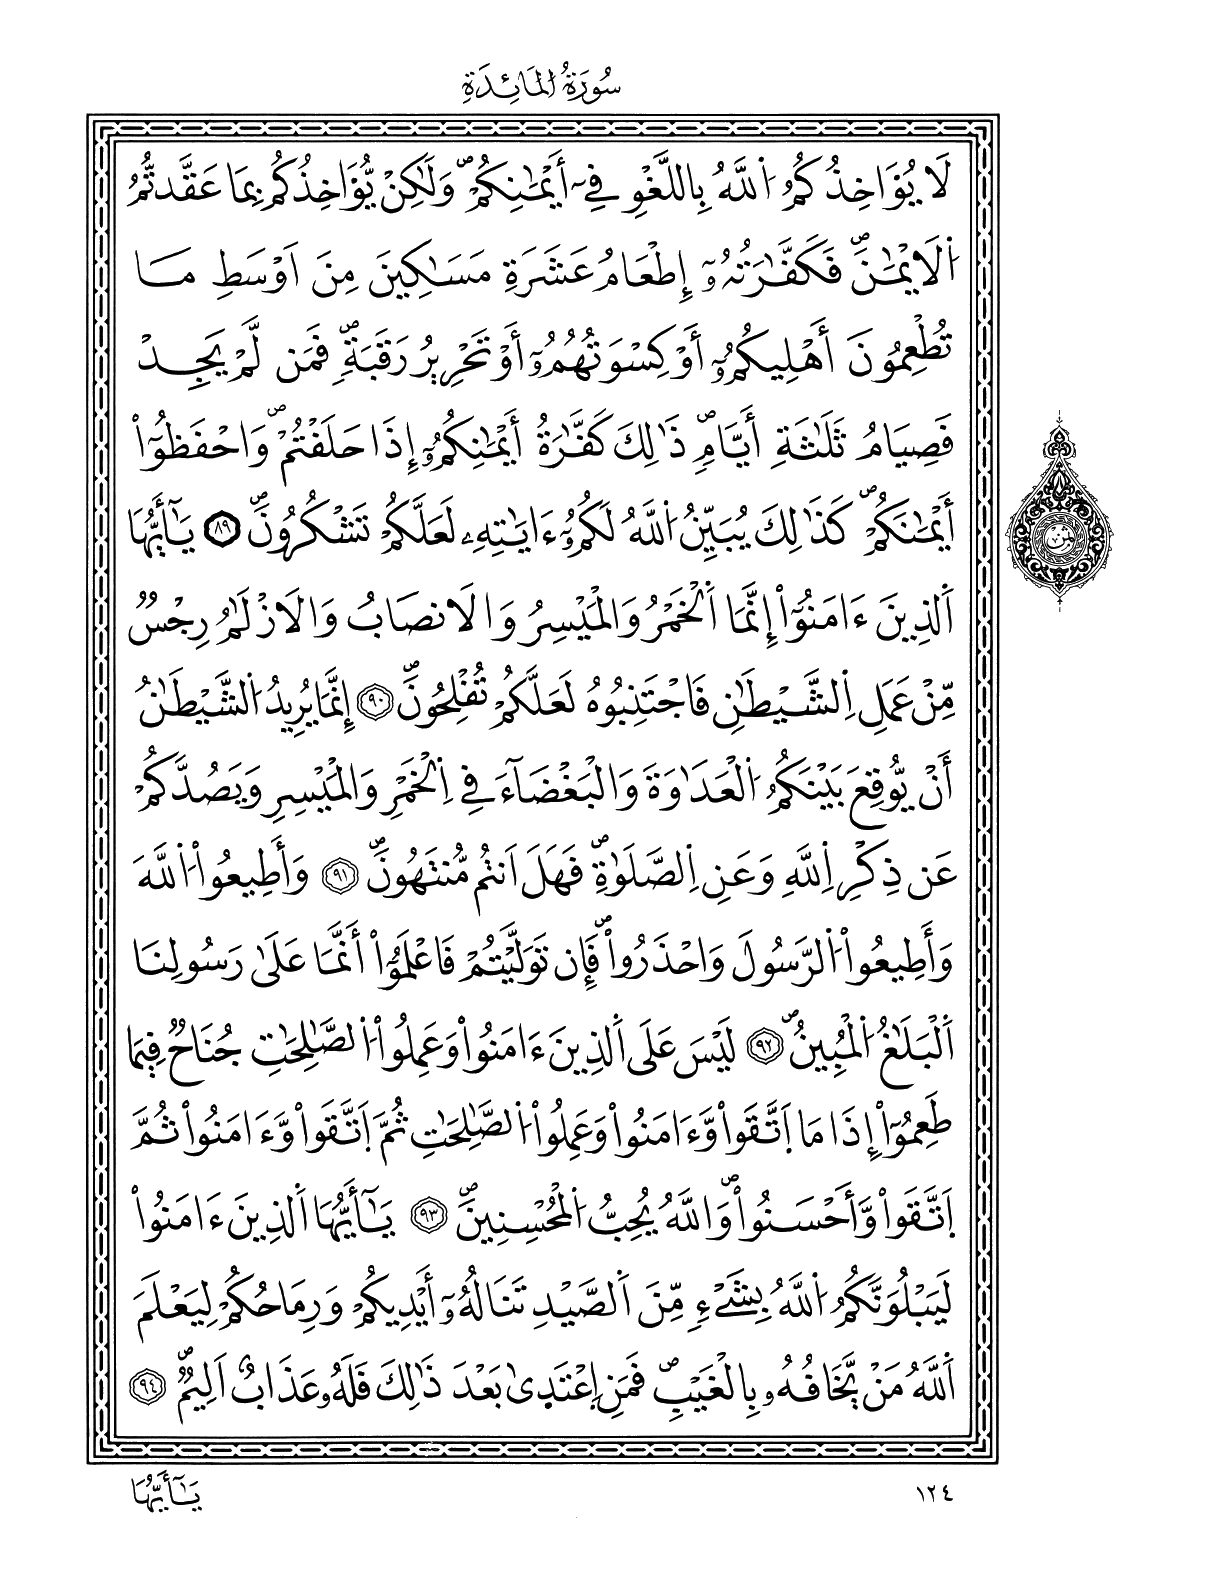 سُورَةُ المَائِدَةِ
لَا يُؤَاخِذُكُمُ اُ۬للَّهُ بِاللَّغْوِ فِےٓ أَيْمَٰنِكُمْۖ وَلَٰكِنْ يُّؤَاخِذُكُم بِمَا عَقَّدتُّمُ
اُ۬لَايْمَٰنَۖ فَكَفَّٰرَتُهُۥٓ إِطْعَامُ عَشَرَةِ مَسَٰكِينَ مِنَ اَوْسَطِ مَا
تُطْعِمُونَ أَهْلِيكُمُۥٓ أَوْ كِسْوَتُهُمُۥٓ أَوْ تَحْرِيرُ رَقَبَةٖۖ فَمَن لَّمْ يَجِدْ
فَصِيَامُ ثَلَٰثَةِ أَيَّامٖۖ ذَٰلِكَ كَفَّٰرَةُ أَيْمَٰنِكُمُۥٓ إِذَا حَلَفْتُمْۖ وَاحْفَظُوٓاْ
أَيْمَٰنَكُمْۖ كَذَٰلِكَ يُبَيِّنُ اُ۬للَّهُ لَكُمُۥٓ ءَايَٰتِهِۦ لَعَلَّكُمْ تَشْكُرُونَۖ ٨٩ يَٰٓأَيُّهَا
اَ۬لذِينَ ءَامَنُوٓاْ إِنَّمَا اَ۬لْخَمْرُ وَالْمَيْسِرُ وَالَانصَابُ وَالَازْلَٰمُ رِجْسٞ
مِّنْ عَمَلِ اِ۬لشَّيْطَٰنِ فَاجْتَنِبُوهُ لَعَلَّكُمْ تُفْلِحُونَۖ ٩٠ إِنَّمَا يُرِيدُ اُ۬لشَّيْطَٰنُ
أَنْ يُّوقِعَ بَيْنَكُمُ اُ۬لْعَدَٰوَةَ وَالْبَغْضَآءَ فِے اِ۬لْخَمْرِ وَالْمَيْسِرِ وَيَصُدَّكُمْ
عَن ذِكْرِ اِ۬للَّهِ وَعَنِ اِ۬لصَّلَوٰةِۖ فَهَلَ اَنتُم مُّنتَهُونَۖ ٩١ وَأَطِيعُواْ اُ۬للَّهَ
وَأَطِيعُواْ اُ۬لرَّسُولَ وَاحْذَرُواْۖ فَإِن تَوَلَّيْتُمْ فَاعْلَمُوٓاْ أَنَّمَا عَلَىٰ رَسُولِنَا
اَ۬لْبَلَٰغُ اُ۬لْمُبِينُۖ ٩٢ لَيْسَ عَلَى اَ۬لذِينَ ءَامَنُواْ وَعَمِلُواْ اُ۬لصَّٰلِحَٰتِ جُنَاحٞ فِيمَا
طَعِمُوٓاْ إِذَا مَا اَ۪تَّقَواْ وَّءَامَنُواْ وَعَمِلُواْ اُ۬لصَّٰلِحَٰتِ ثُمَّ اَ۪تَّقَواْ وَّءَامَنُواْ ثُمَّ
اَ۪تَّقَواْ وَّأَحْسَنُواْۖ وَاللَّهُ يُحِبُّ اُ۬لْمُحْسِنِينَۖ ٩٣ يَٰٓأَيُّهَا اَ۬لذِينَ ءَامَنُواْ
لَيَبْلُوَنَّكُمُ اُ۬للَّهُ بِشَےْءٖ مِّنَ اَ۬لصَّيْدِ تَنَالُهُۥٓ أَيْدِيكُمْ وَرِمَاحُكُمْ لِيَعْلَمَ
اَ۬للَّهُ مَنْ يَّخَافُهُۥ بِالْغَيْبِۖ فَمَنِ اِ۪عْتَدَىٰ بَعْدَ ذَٰلِكَ فَلَهُۥ عَذَابٌ اَلِيمٞۖ ٩٤
١٢٤
يَٰٓأَيُّهَا